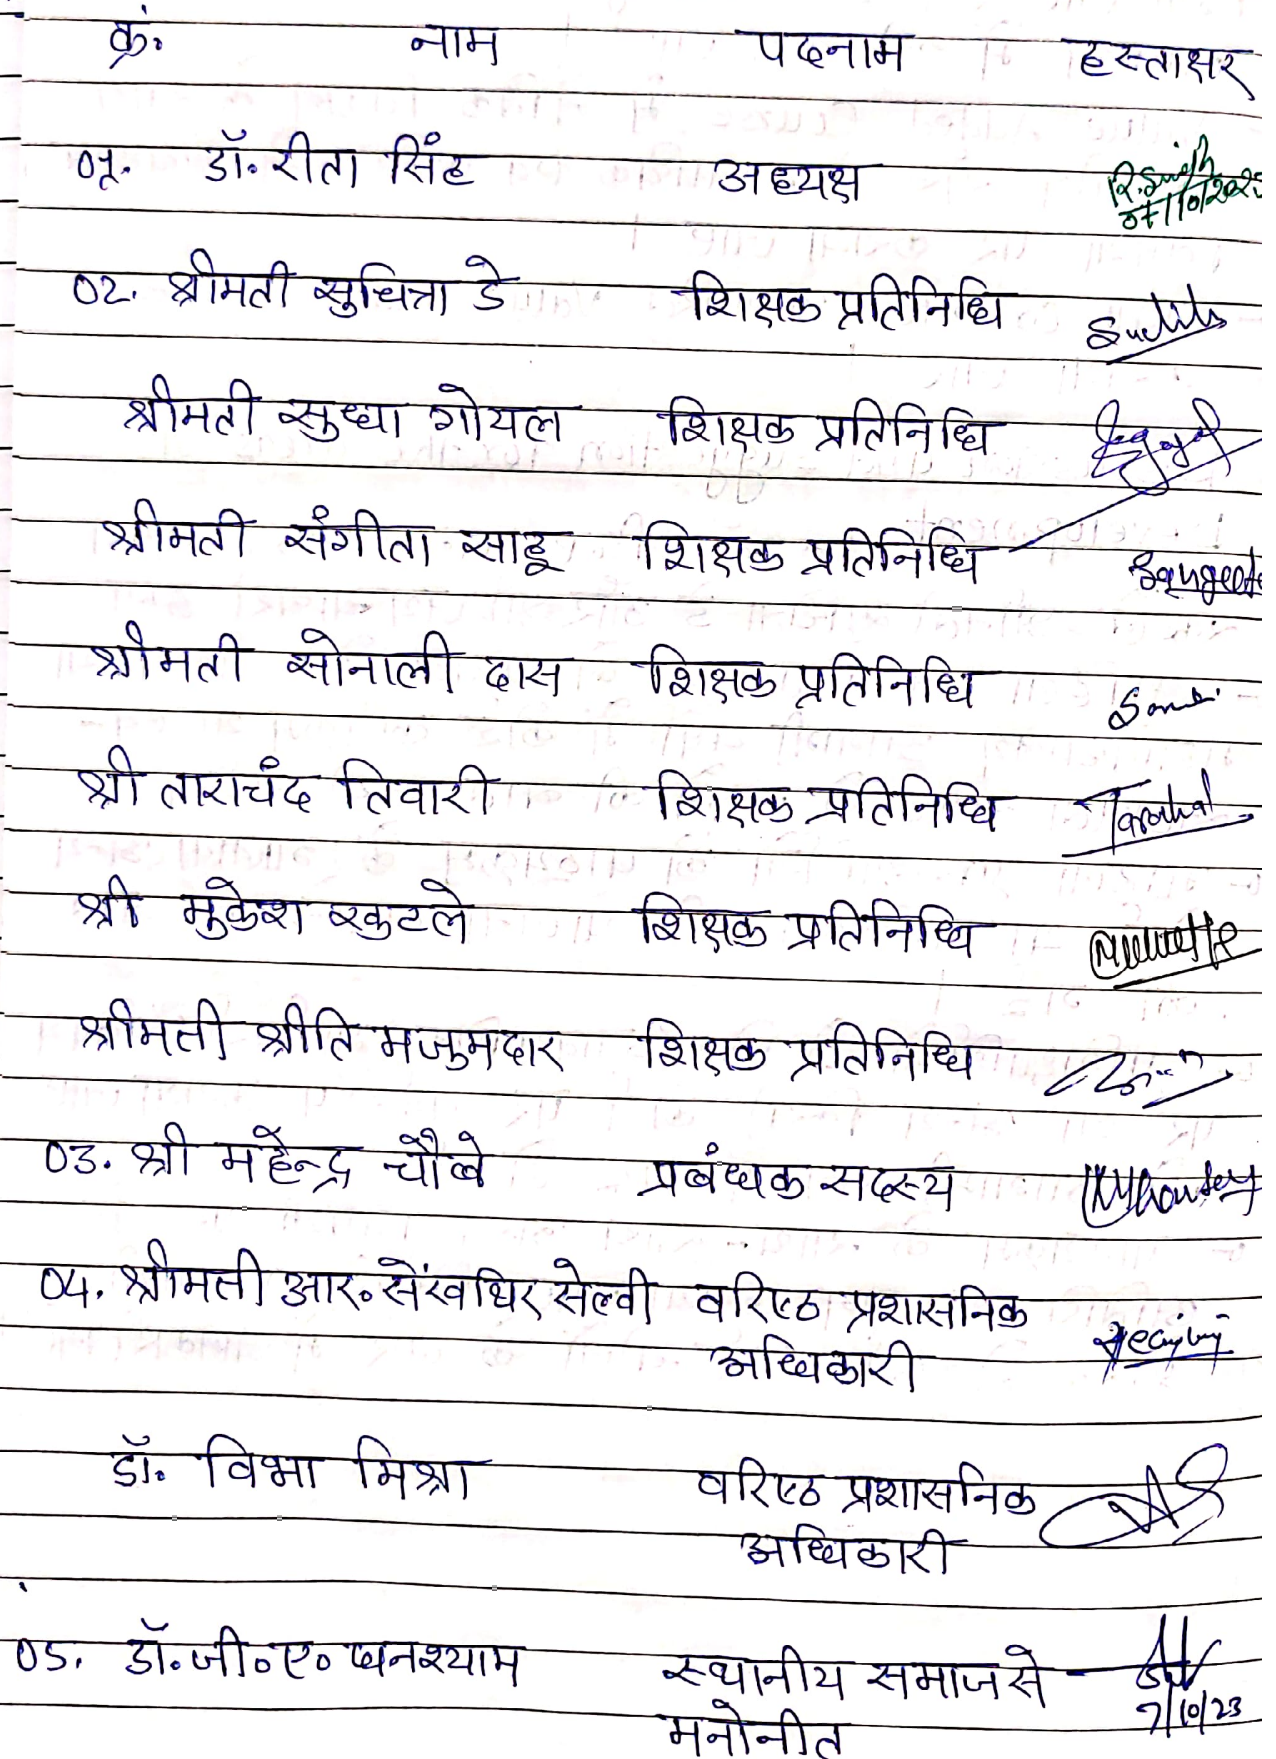 क्रं. नाम पदनाम हस्ताक्षर
01. डॉ. रीता सिंह अध्यक्ष R. Singh
07/10/2023
02. श्रीमती सुचित्रा डे शिक्षक प्रतिनिधि
श्रीमती सुधा गोयल शिक्षक प्रतिनिधि
श्रीमती संगीता साहू शिक्षक प्रतिनिधि Sangeeta
श्रीमती सोनाली दास शिक्षक प्रतिनिधि
श्री ताराचंद तिवारी शिक्षक प्रतिनिधि
श्री मुकेश खुटले शिक्षक प्रतिनिधि
श्रीमती प्रीति मजुमदार शिक्षक प्रतिनिधि
03. श्री महेन्द्र चौबे प्रबंधक सदस्य
04. श्रीमती आर. सेंखथिर सेल्वी वरिष्ठ प्रशासनिक
अधिकारी
डॉ. विभा मिश्रा वरिष्ठ प्रशासनिक
अधिकारी
05. डॉ. जी. ए. घनश्याम स्थानीय समाज से
मनोनीत 7/10/23